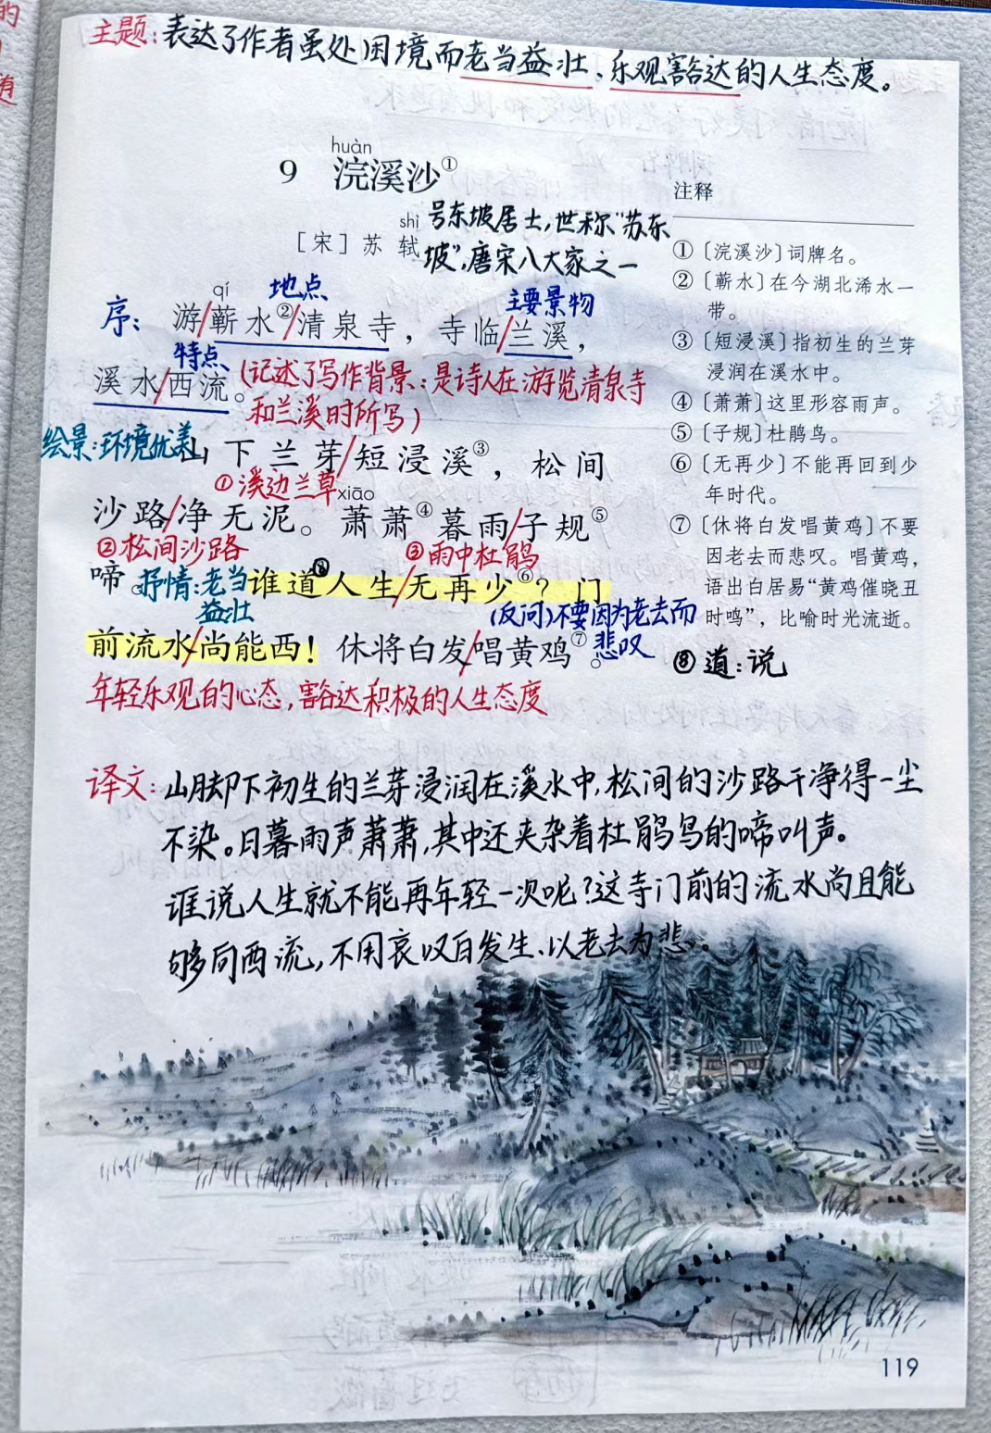 主题:表达了作者虽处困境而老当益壮、乐观豁达的人生态度。
huàn
9 浣溪沙①
shì
[宋] 苏 轼
号东坡居士,世称“苏东
坡”,唐宋八大家之一
qí
地点
主要景物
序:
游/蕲水②/清泉寺,寺临/兰溪,
特点
溪水/西流。
(记述了写作背景:是诗人在游览清泉寺
和兰溪时所写)
绘景:环境优美
山下兰芽/短浸溪③,松间
①溪边兰草
xiāo
沙路/净无泥。萧萧④暮雨/子规⑤
②松间沙路
③雨中杜鹃
啼。
抒情:老当
益壮
谁道⑧人生/无再少⑥?门
(反问)不要因为老去而
悲叹
前流水/尚能西!休将白发/唱黄鸡⑦。
年轻乐观的心态,豁达积极的人生态度
注释
①〔浣溪沙〕词牌名。
②〔蕲水〕在今湖北浠水一
带。
③〔短浸溪〕指初生的兰芽
浸润在溪水中。
④〔萧萧〕这里形容雨声。
⑤〔子规〕杜鹃鸟。
⑥〔无再少〕不能再回到少
年时代。
⑦〔休将白发唱黄鸡〕不要
因老去而悲叹。唱黄鸡,
语出白居易“黄鸡催晓丑
时鸣”,比喻时光流逝。
⑧道:说
译文:山脚下初生的兰芽浸润在溪水中,松间的沙路干净得一尘
不染。日暮雨声萧萧,其中还夹杂着杜鹃鸟的啼叫声。
谁说人生就不能再年轻一次呢?这寺门前的流水尚且能
够向西流,不用哀叹白发生、以老去为悲。
119